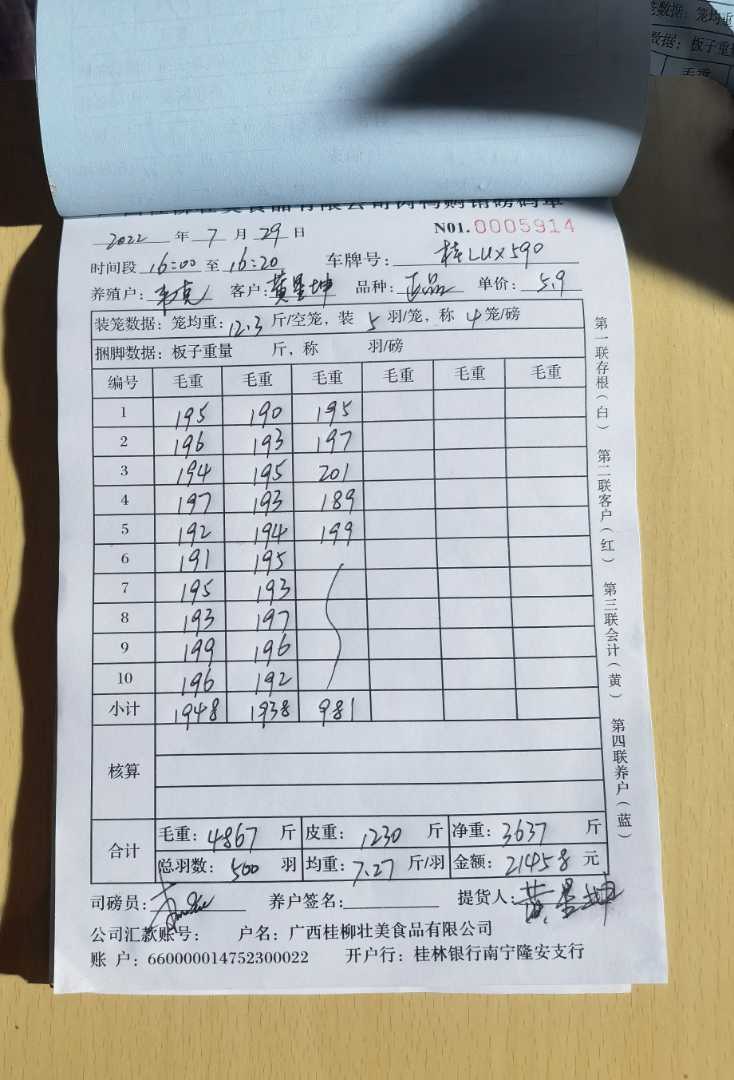 NO1.0005914
2022 年 7 月 29 日
时间段 16:00 至 16:20 车牌号: 桂LUX590
养殖户: 客户: 黄星坤 品种: 正品 单价: 5.9
装笼数据: 笼均重: 12.3 斤/空笼, 装 5 羽/笼, 称 4 笼/磅
捆脚数据: 板子重量 斤, 称 羽/磅
编号 毛重 毛重 毛重 毛重 毛重 毛重
1 195 190 195
2 196 193 197
3 194 195 201
4 197 193 189
5 192 194 199
6 191 195
7 195 193
8 193 197
9 199 196
10 196 192
小计 1948 1938 981
核算
合计 毛重: 4867 斤 皮重: 1230 斤 净重: 3637 斤
总羽数: 500 羽 均重: 7.27 斤/羽 金额: 21458 元
司磅员: 养户签名: 提货人: 黄星坤
公司汇款账号: 户名: 广西桂柳壮美食品有限公司
账 户: 660000014752300022 开户行: 桂林银行南宁隆安支行
第一联存根(白) 第二联客户(红) 第三联会计(黄) 第四联养户(蓝)
数据: 笼均重
数据: 板子重
毛重